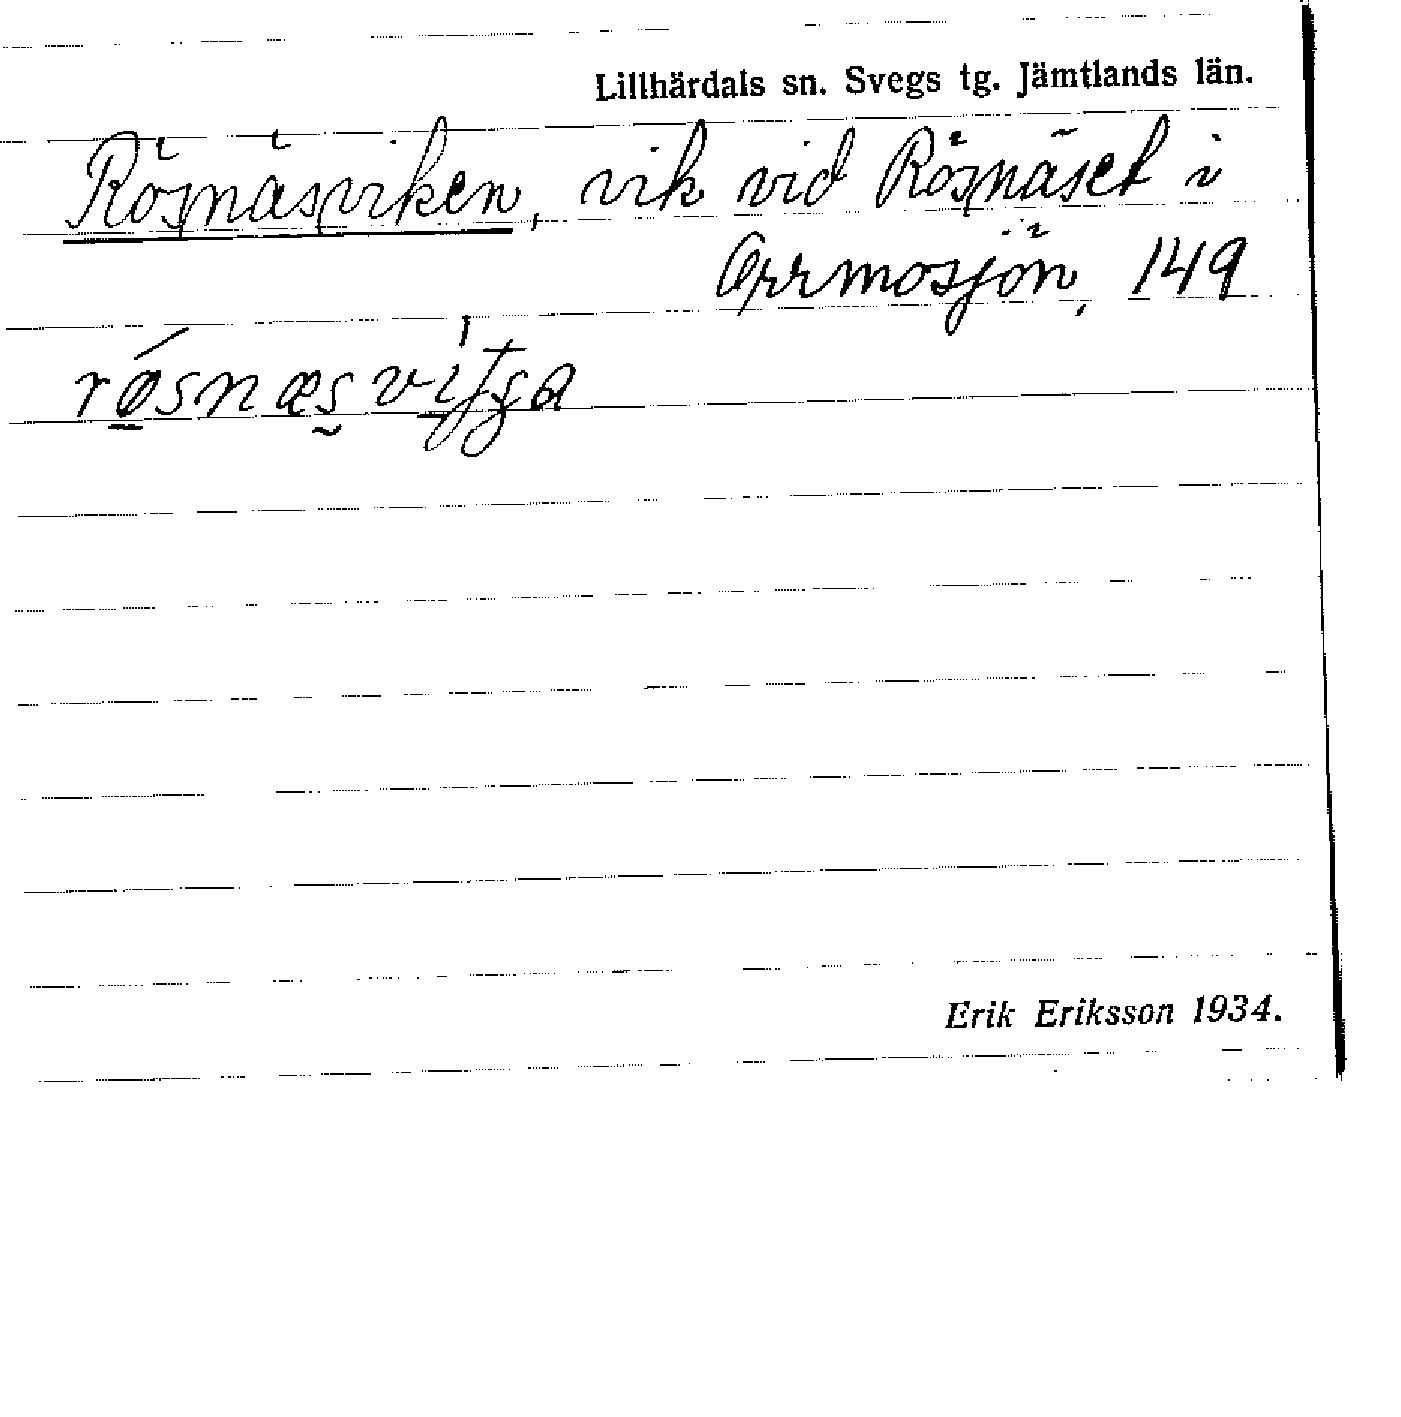 Lillhärdals sn. Svegs tg. Jämtlands län.
Rösnäsviken, vik vid Rösnäset i
Orrmosjön, 149
Erik Eriksson 1934.